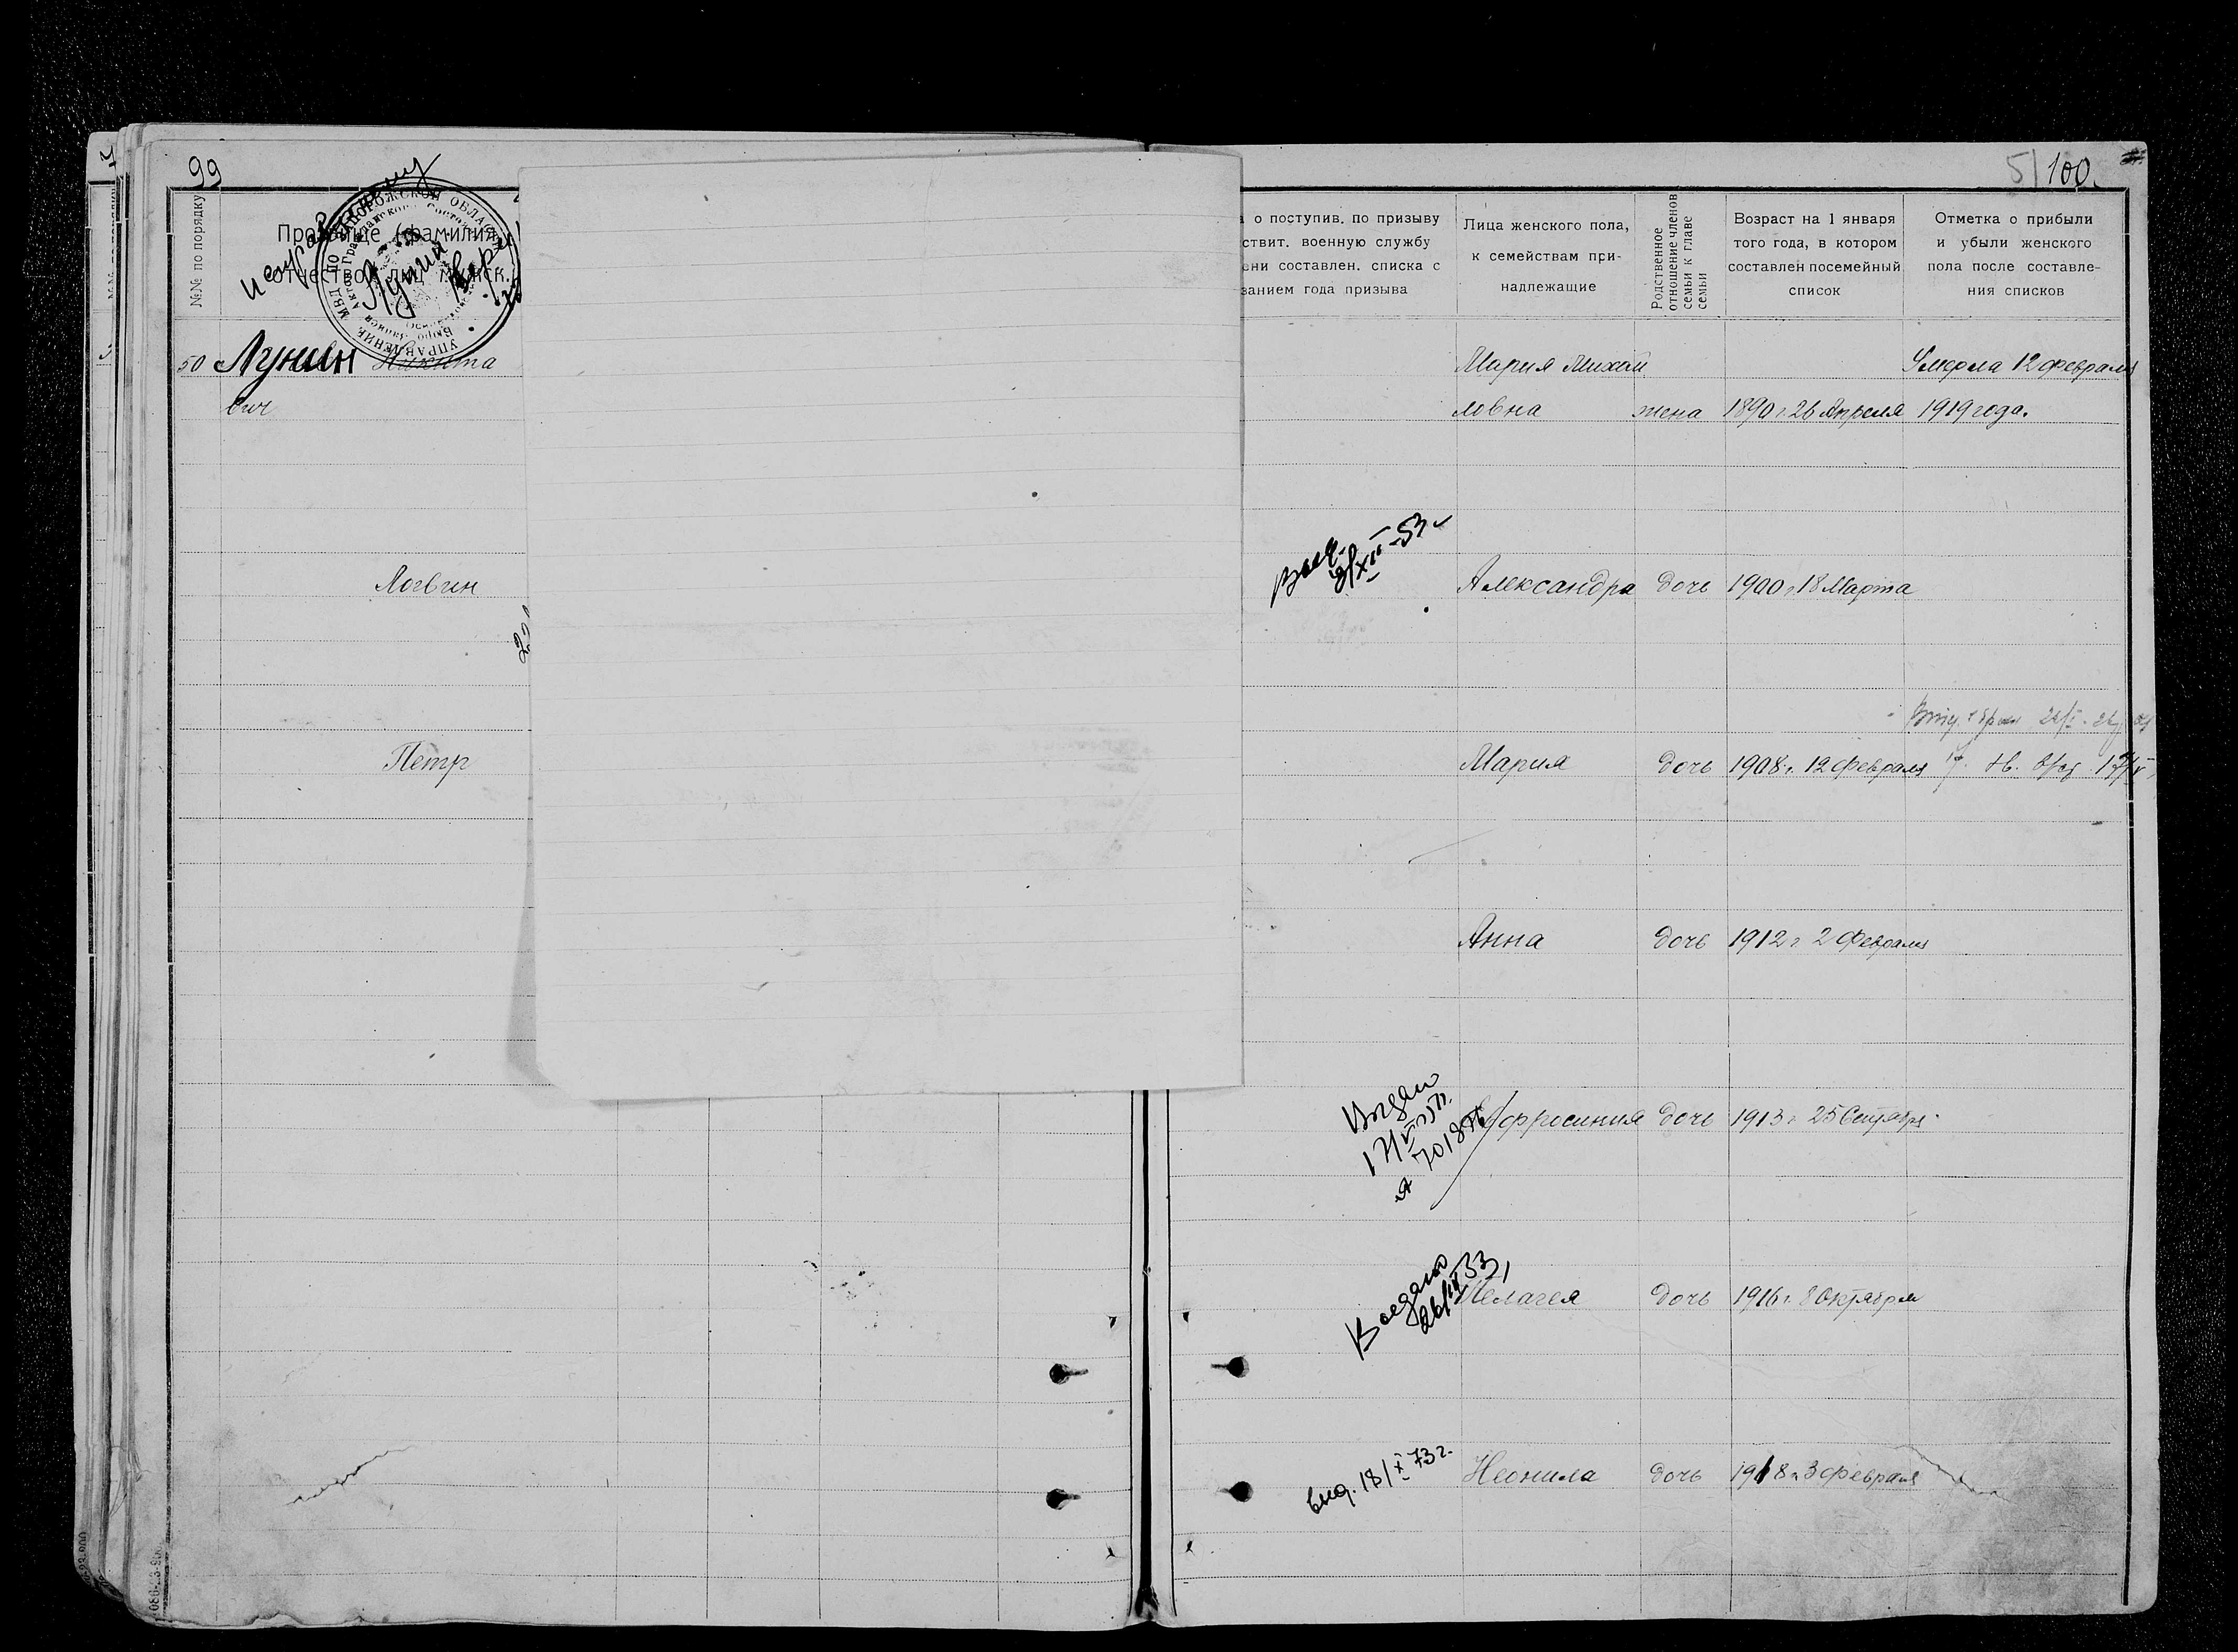 99
5/100.
№№ по порядку
Прозвище (фамилия
отчество лиц мужск.
исправленному
Лунин
верить
МВД ПО ЗАПОРОЖСКОЙ ОБЛАСТИ
УПРАВЛЕНИЕ
о поступив. по призыву
ствит. военную службу
ени составлен. списка с
занием года призыва
Лица женского пола,
к семействам при-
надлежащие
Родственное
отношение членов
семьи к главе
семьи
Возраст на 1 января
того года, в котором
составлен посемейный
список
Отметка о прибыли
и убыли женского
пола после составле-
ния списков
50 Лунин Никита
вич
Мария Михай
ловна жена 1890 г. 26 Апреля
Умерла 12 февраля
1919 года.
Логвин
XII-53
Александра дочь 1900 г. 18 Марта
Петр
Мария дочь 1908 г. 12 февраля
Анна дочь 1912 г. 2 февраля
Выдано
Ефросиния дочь 1913 г. 25 Сентябр.
Выдано
Пелагея дочь 1916 г. 8 Октября
выд. 18/X 73 г.
Неонила дочь 1918 г. 3 февраля